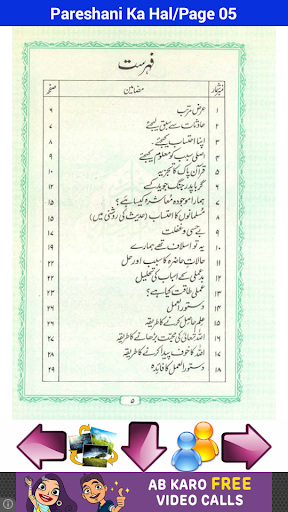 Pareshani Ka Hal/Page 05
فہرست
نمبرشمار مضامین صفحہ
۱ عرض مرتب ۶
۲ حادثات سے سبق لیجئے ۷
۳ اپنا احتساب کیجئے۔ ۸
۴ اصلی سبب کو معلوم کیجئے ۹
۵ قرآن پاک کا تجزیہ
۶ گر باپدر جنگ جوید کسے
۷ ہمارا موجودہ معاشرہ کیسا ہے؟
۸ مسلمانوں کا احتساب (حدیث کی روشنی میں) ۱۵
۹ بے حسی و غفلت
۱۰ یہ تو اسلاف تھے ہمارے
۱۱ حالات حاضرہ کا سبب اور حل ۲۲
۱۲ بدعملی کے اسباب کی تحلیل ۲۲
۱۳ عملی طاقت کیا ہے؟
۱۴ دستور العمل
۱۵ علم حاصل کرنے کا طریقہ
۱۶ اللہ تعالیٰ کی محبت بڑھانے کا طریقہ
۱۷ اللہ کا خوف پیدا کرنے کا طریقہ ۲۸
۱۸ دستور العمل کا فائدہ ۲۹
۵
AB KARO FREE
VIDEO CALLS